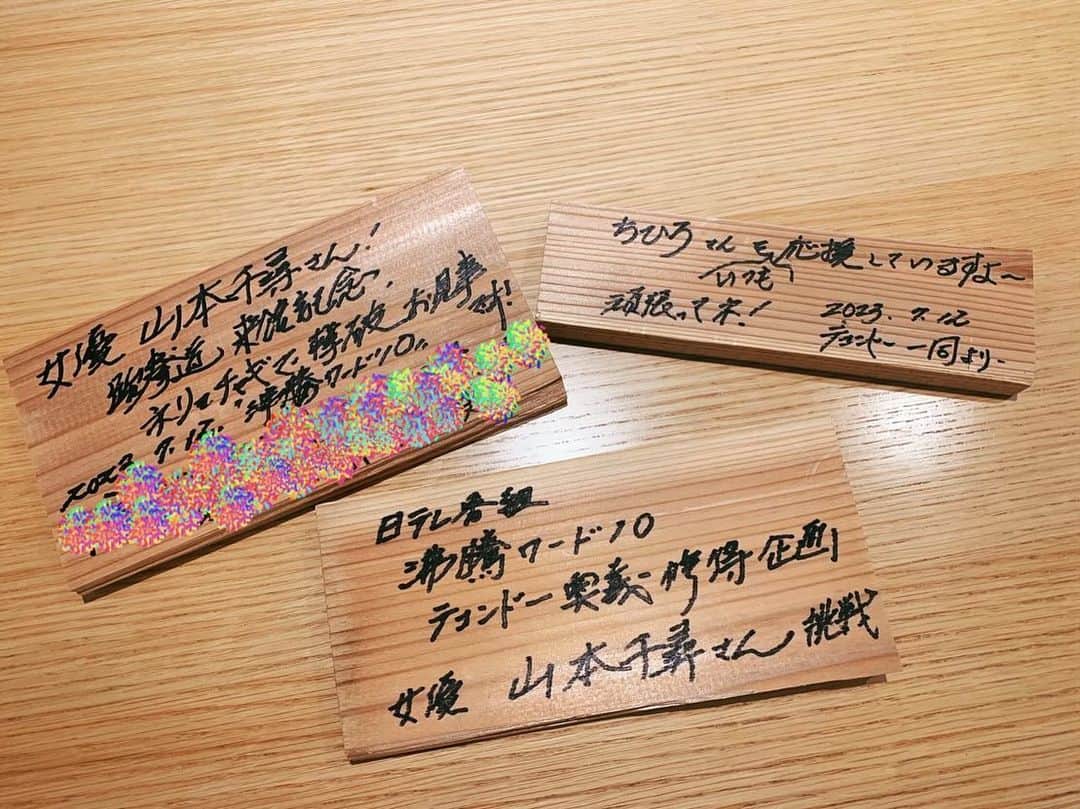 女優 山本千尋さん!
跆拳道 来浩記念、
ネリョチャギで撃破お見事です!
2023 7.12. "沸騰ワード10"
ちひろさんをいつも応援していますよ〜
頑張って米!
2023.7.12
テコンドー一同より.
日テレ番組
沸騰ワード10
テコンドー奥義修得企画
女優 山本千尋さん挑戦